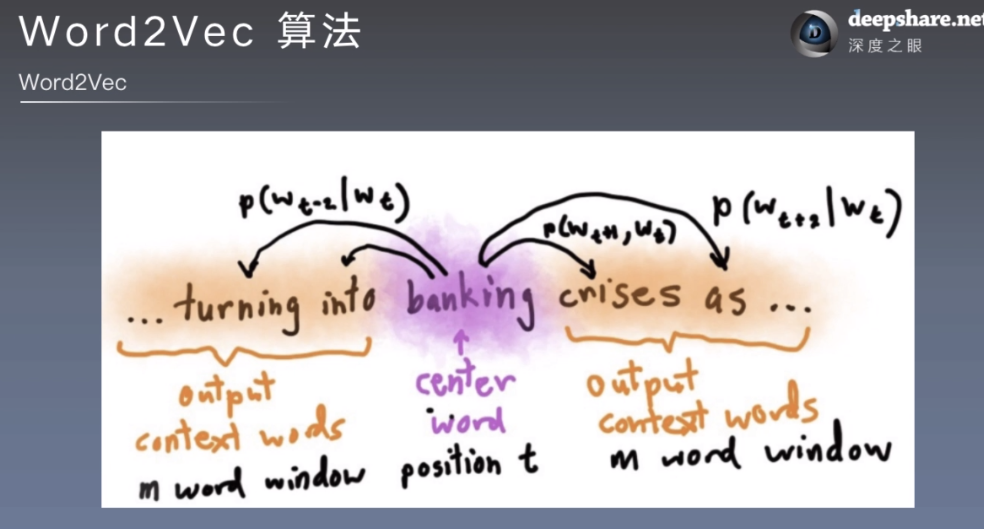 Word2Vec 算法
deepshare.net
深度之眼
Word2Vec
p(w t-2 | w t)
p(w t+1, w t)
p(w t+2 | w t)
... turning into banking crises as ...
output
context words
m word window
center
word
position t
output
context words
m word window